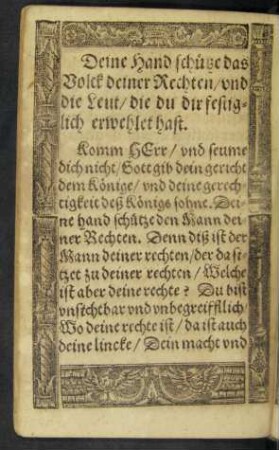 Deine Hand schütze das
Volck deiner Rechten / vnd
die Leut / die du dir festig-
lich erwehlet hast.
Komm HErr / vnd seume
dich nicht / Gott gib dein gericht
dem Könige / vnd deine gerech-
tigkeit deß Königs sohne. Dei-
ne hand schütze den Mann dei-
ner Rechten. Denn diß ist der
Mann deiner rechten / der da si-
tzet zu deiner rechten / Welche
ist aber deine rechte? Du bist
vnsichtbar vnd vnbegreifflich /
Wo deine rechte ist / da ist auch
deine lincke / Dein macht vnd